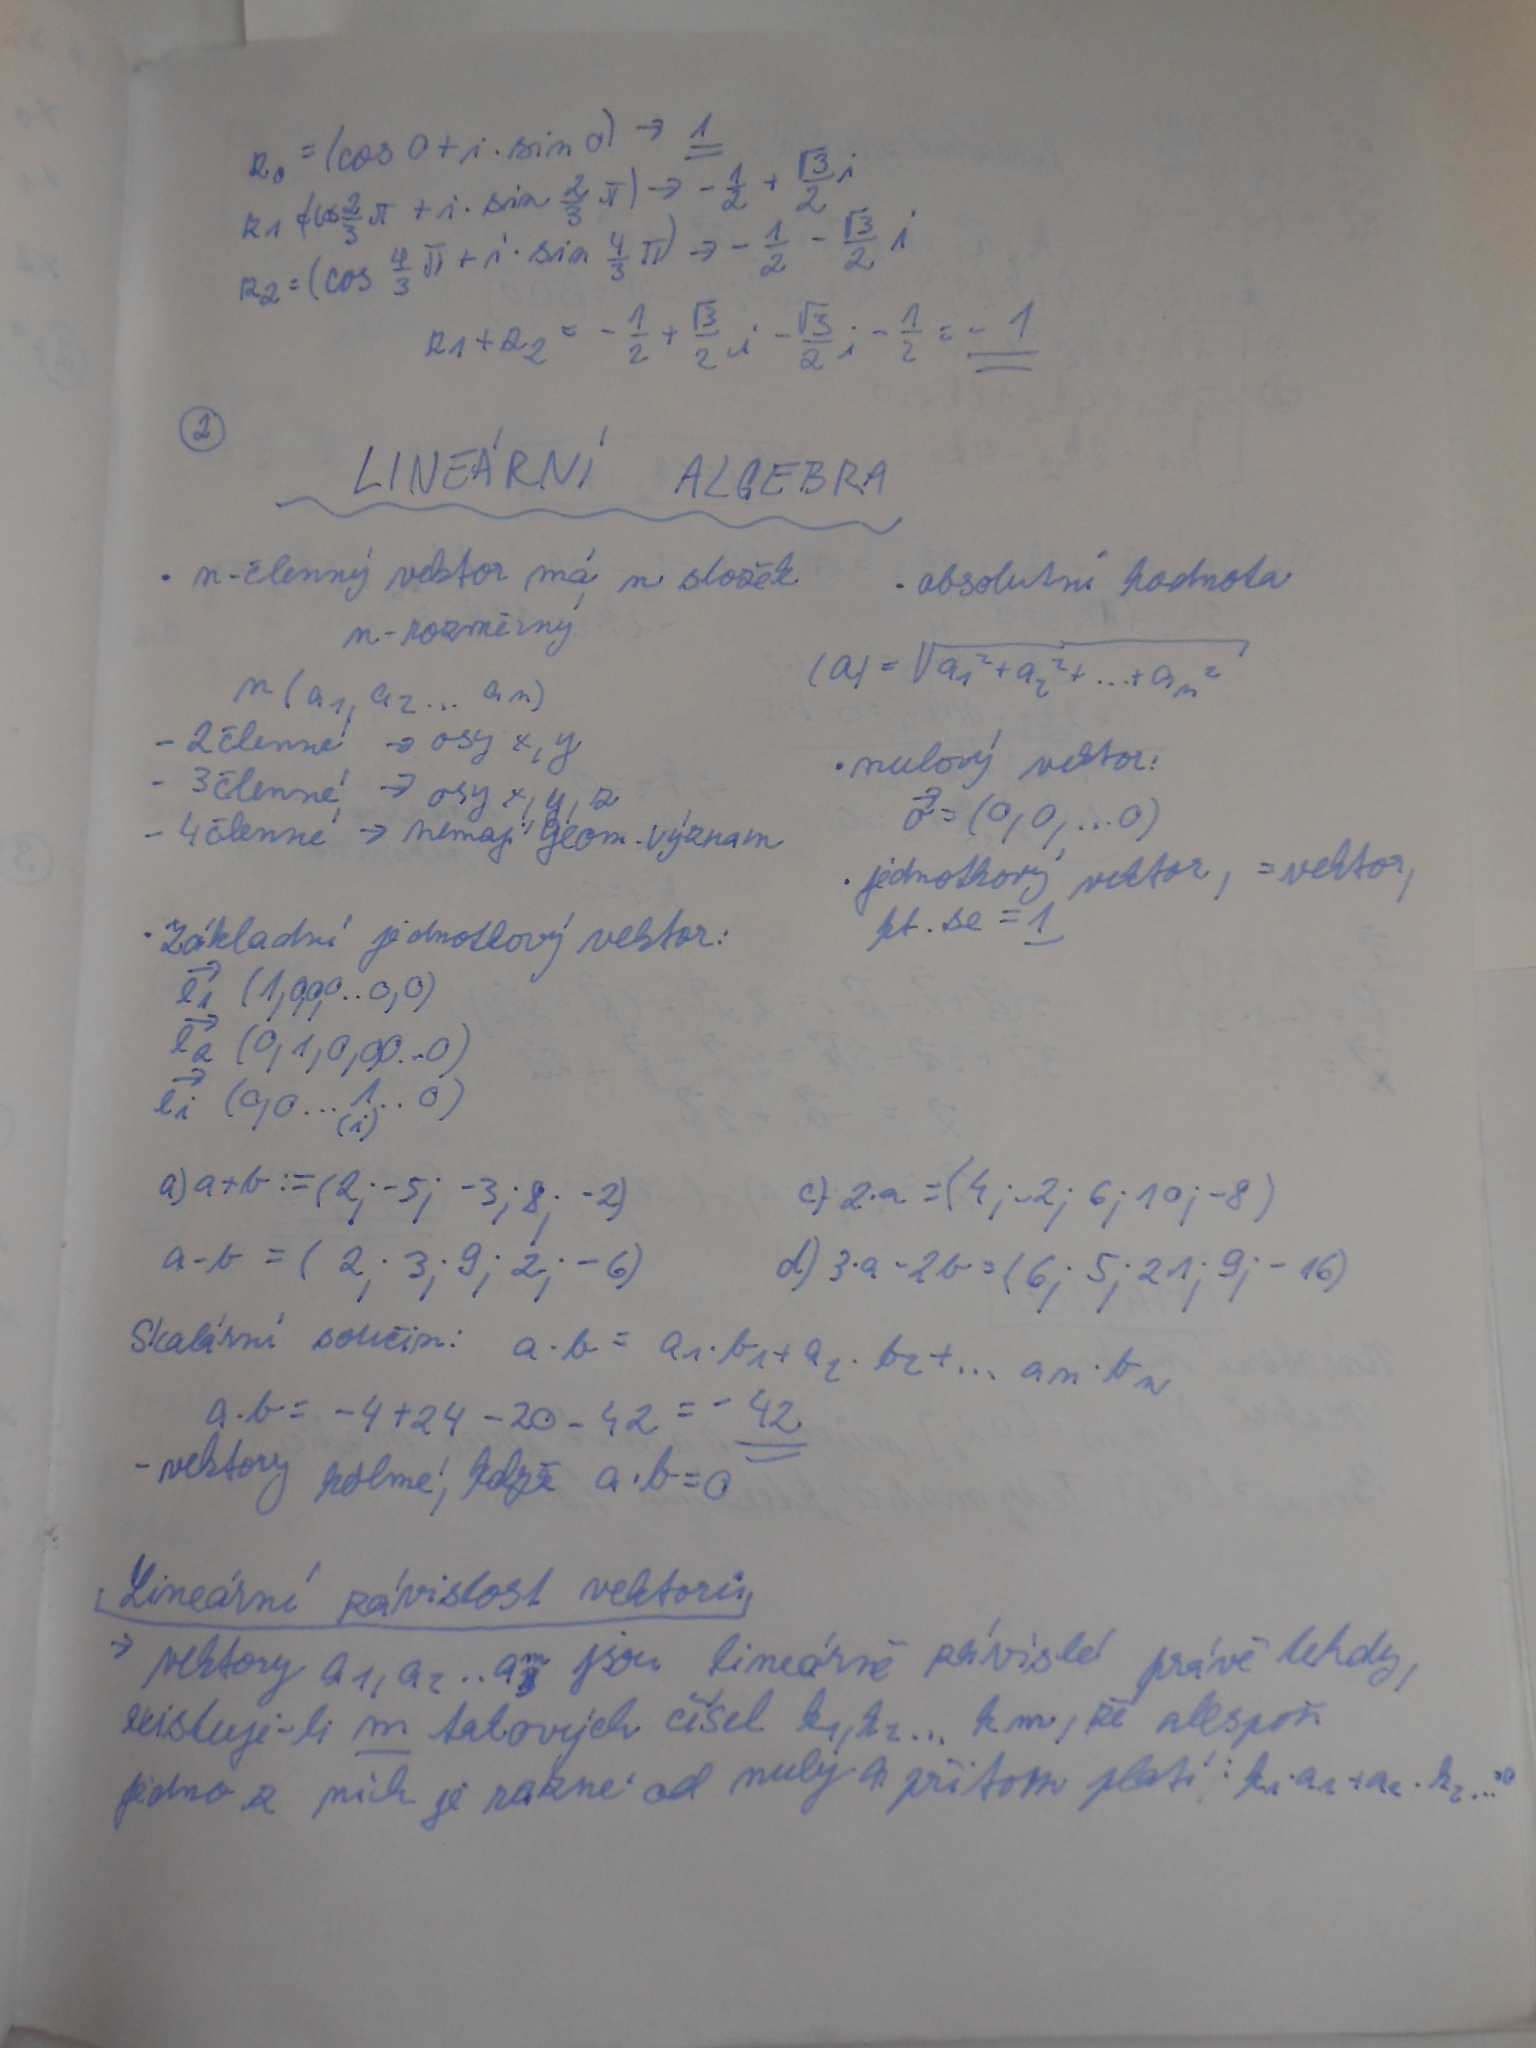 z₀ = (cos 0 + i · sin 0) → 1
z₁ = (cos 2/3 π + i · sin 2/3 π) → - 1/2 + √3/2 i
z₂ = (cos 4/3 π + i · sin 4/3 π) → - 1/2 - √3/2 i
z₁ + z₂ = - 1/2 + √3/2 i - √3/2 i - 1/2 = - 1
2
LINEÁRNÍ ALGEBRA
• n-členný vektor má n složek
n-rozměrný
n (a₁, a₂ ... an)
- 2členné → osy x, y
- 3členné → osy x, y, z
- 4členné → nemají geom. význam
• absolutní hodnota
|a| = √a₁² + a₂² + ... + aₙ²
• nulový vektor:
o⃗ = (0, 0, ... 0)
• jednotkový vektor, = vektor,
kt. se = 1
• Základní jednotkový vektor:
e₁⃗ (1,0,0,0..0,0)
e₂⃗ (0,1,0,0,0...0)
eᵢ⃗ (0,0...1..0)
(i)
a) a+b := (2; -5; -3; 8; -2)
a-b = (2; 3; 9; 2; -6)
c) 2·a = (4; -2; 6; 10; -8)
d) 3·a - 2b = (6; 5; 21; 9; -16)
Skalární součin: a·b = a₁·b₁ + a₂·b₂ + ... an·bn
a·b = -4 + 24 - 20 - 42 = - 42
- vektory kolmé, když a·b = 0
Lineární závislost vektorů
→ vektory a₁, a₂ .. am jsou lineárně závislé právě tehdy,
existuje-li m takových čísel k₁, k₂ ... km, že alespoň
jedno z nich je různé od nuly a přitom platí: k₁·a₁ + a₂·k₂ ... =0